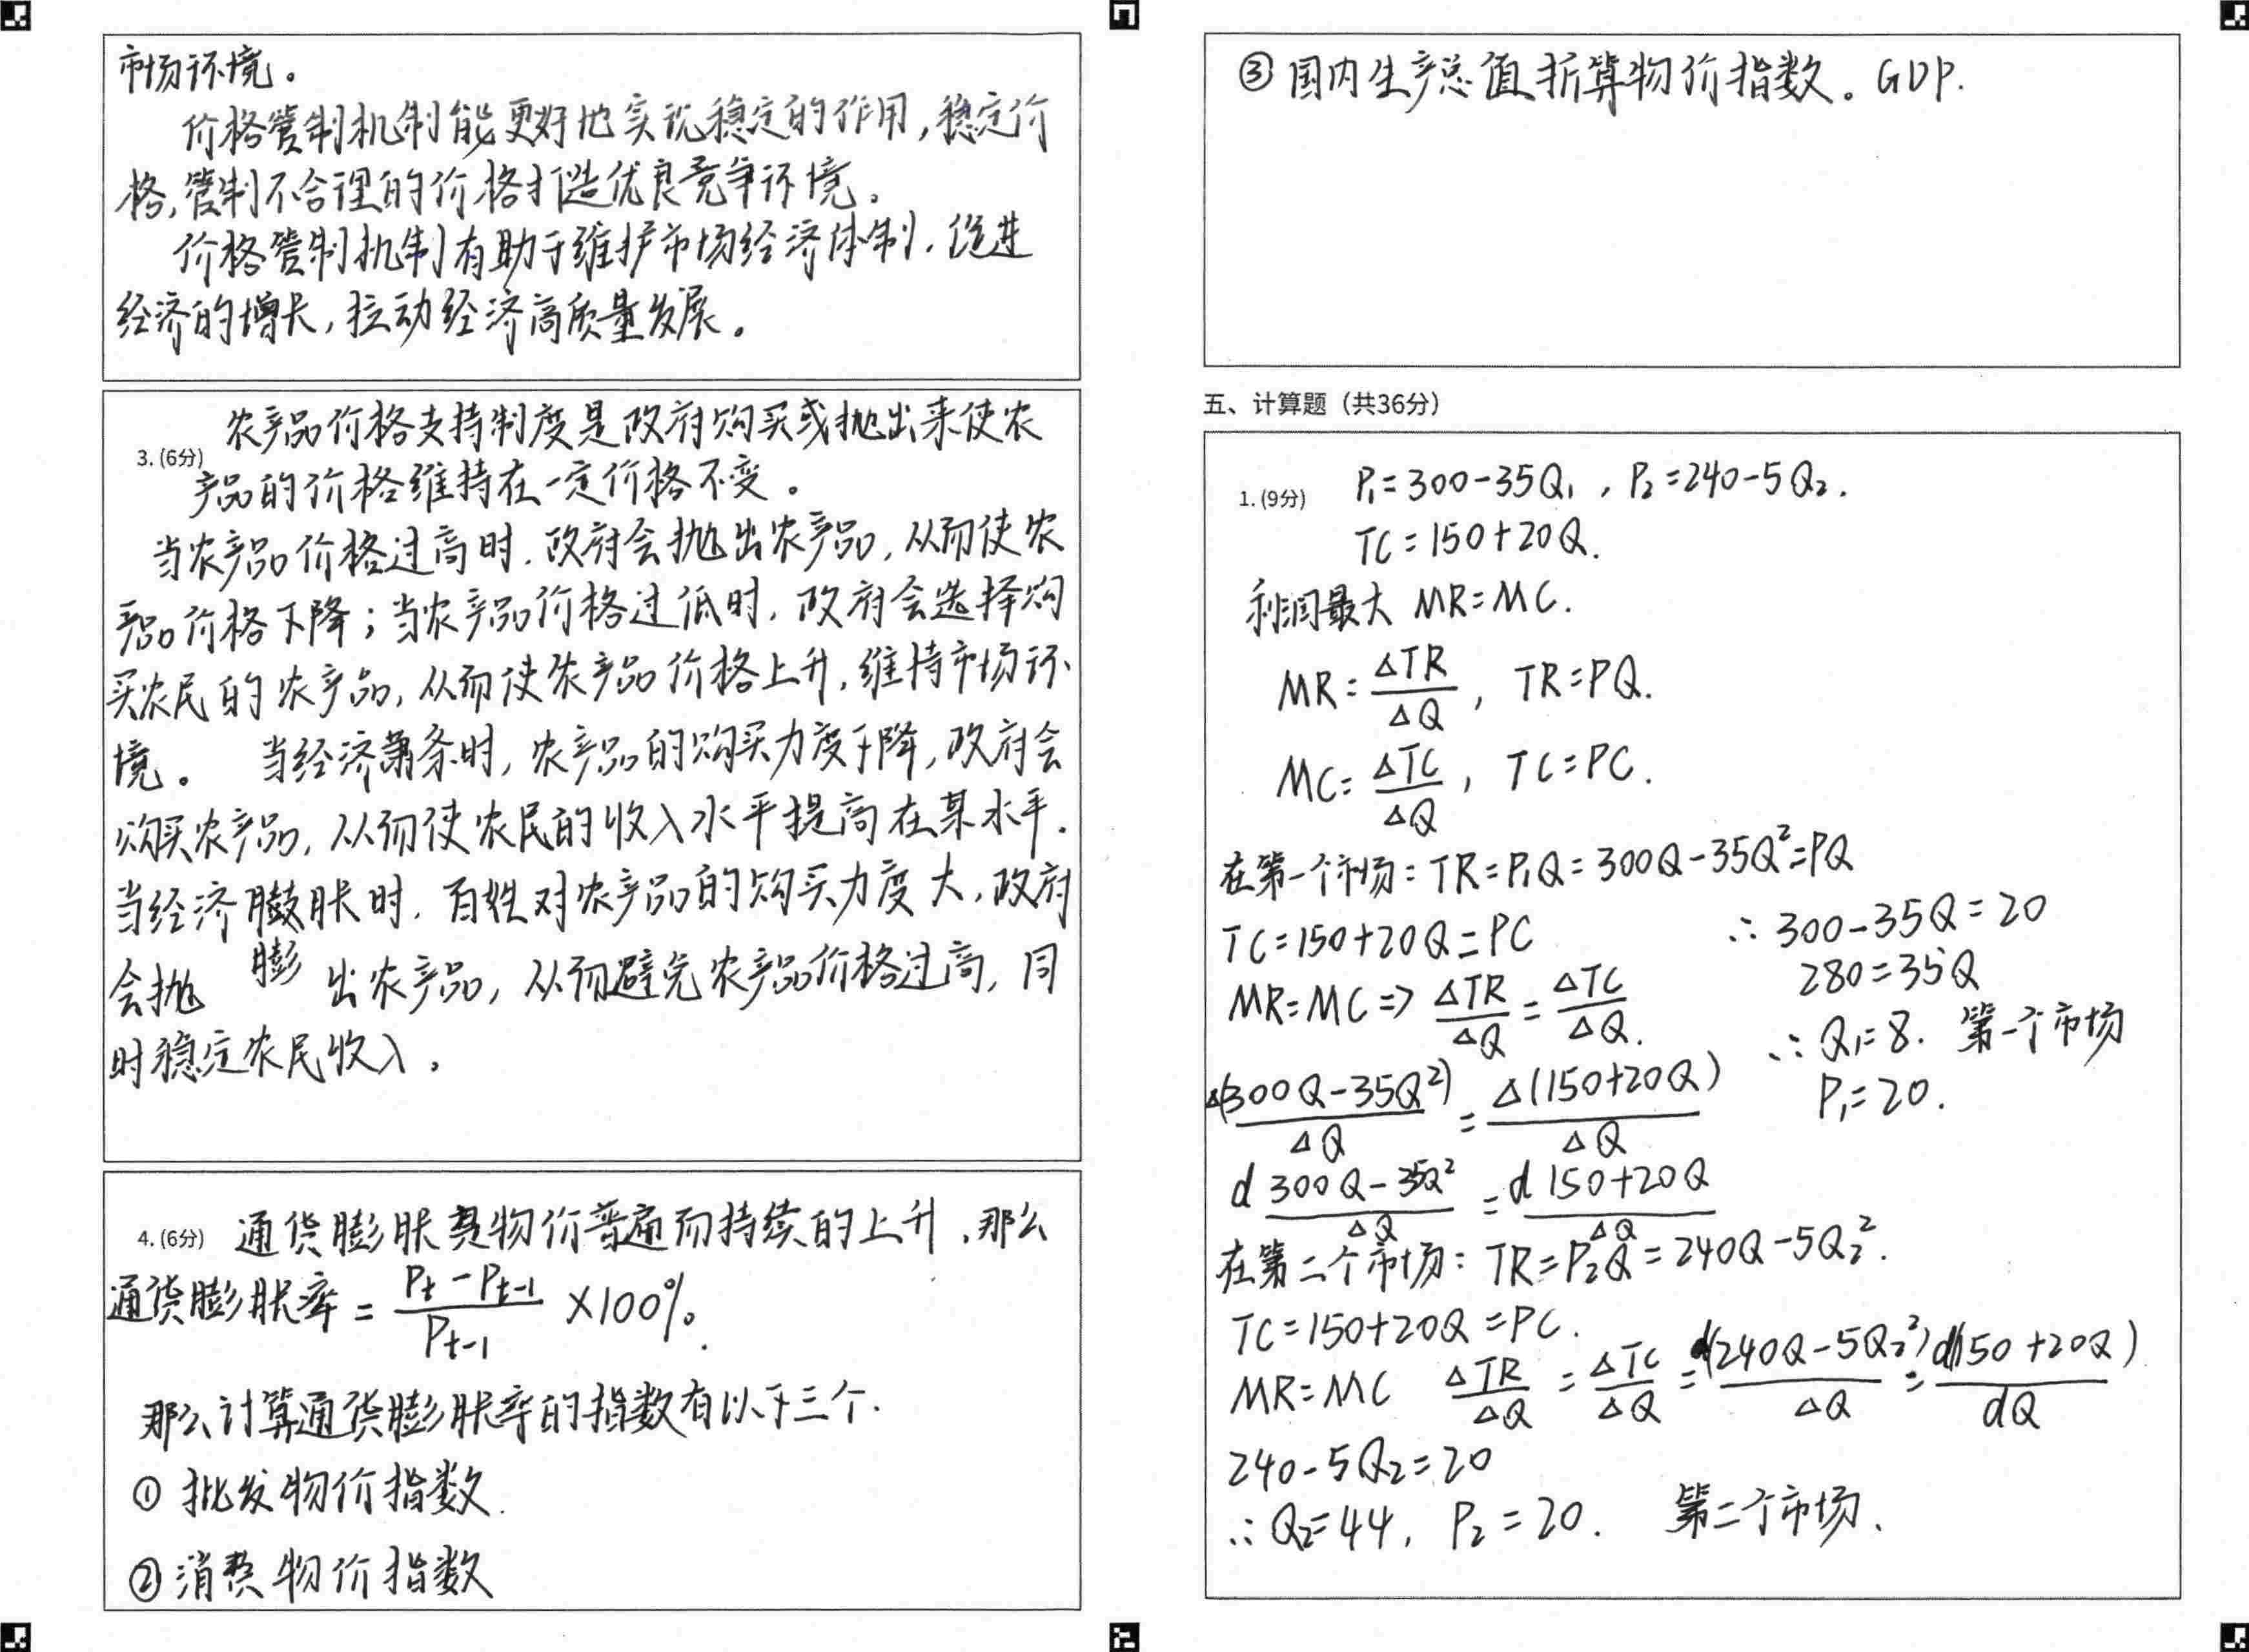 市场环境。
价格管制机制能更好地实现稳定的作用,稳定价
格,管制不合理的价格打造优良竞争环境。
价格管制机制有助于维护市场经济体制,促进
经济的增长,拉动经济高质量发展。
3.(6分) 农产品价格支持制度是政府购买或抛出来使农
产品的价格维持在一定价格不变。
当农产品价格过高时,政府会抛出农产品,从而使农
产品价格下降;当农产品价格过低时,政府会选择购
买农民的农产品,从而使农产品价格上升,维持市场环
境。 当经济萧条时,农产品的购买力度下降,政府会
购买农产品,从而使农民的收入水平提高在某水平.
当经济膨胀时,百姓对农产品的购买力度大,政府
会抛 膨 出农产品,从而避免农产品价格过高,同
时稳定农民收入。
4.(6分) 通货膨胀是物价普遍而持续的上升,那么
通货膨胀率 = (Pt - Pt-1)/Pt-1 ×100%.
那么计算通货膨胀率的指数有以下三个.
① 批发物价指数.
② 消费物价指数
③ 国内生产总值折算物价指数。GDP.
五、计算题(共36分)
1.(9分) P₁=300-35Q₁ , P₂=240-5Q₂.
TC=150+20Q.
利润最大 MR=MC.
MR=ΔTR/ΔQ , TR=PQ.
MC=ΔTC/ΔQ , TC=PC.
在第一个市场: TR=P₁Q=300Q-35Q²=PQ
TC=150+20Q=PC
MR=MC=> ΔTR/ΔQ = ΔTC/ΔQ.
Δ(300Q-35Q²)/ΔQ = Δ(150+20Q)/ΔQ
d 300Q-35Q²/ΔQ = d 150+20Q/ΔQ
∴ 300-35Q=20
280=35Q
∴ Q₁=8. 第一个市场
P₁=20.
在第二个市场: TR=P₂Q=240Q-5Q₂².
TC=150+20Q=PC.
MR=MC ΔTR/ΔQ = ΔTC/ΔQ = d(240Q-5Q₂²)/ΔQ = d(150+20Q)/dQ
240-5Q₂=20
∴ Q₂=44, P₂=20. 第二个市场、